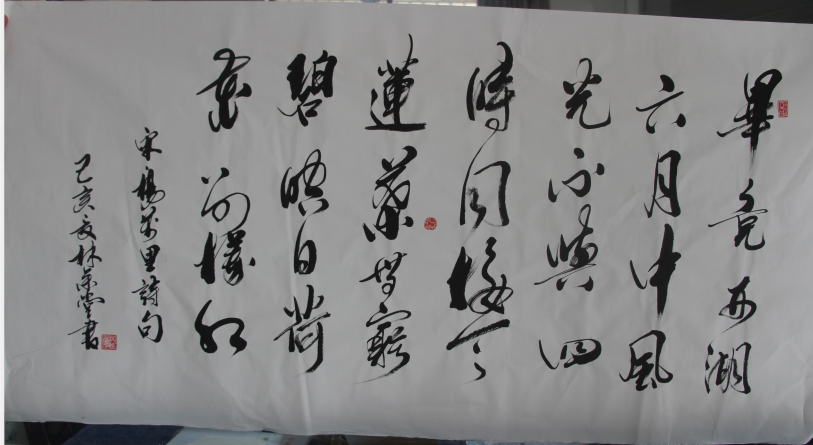 畢竟西湖
六月中風
光不與四
時同接天
蓮葉無窮
碧映日荷
花別樣紅
宋楊萬里詩句
己亥夏林堂書